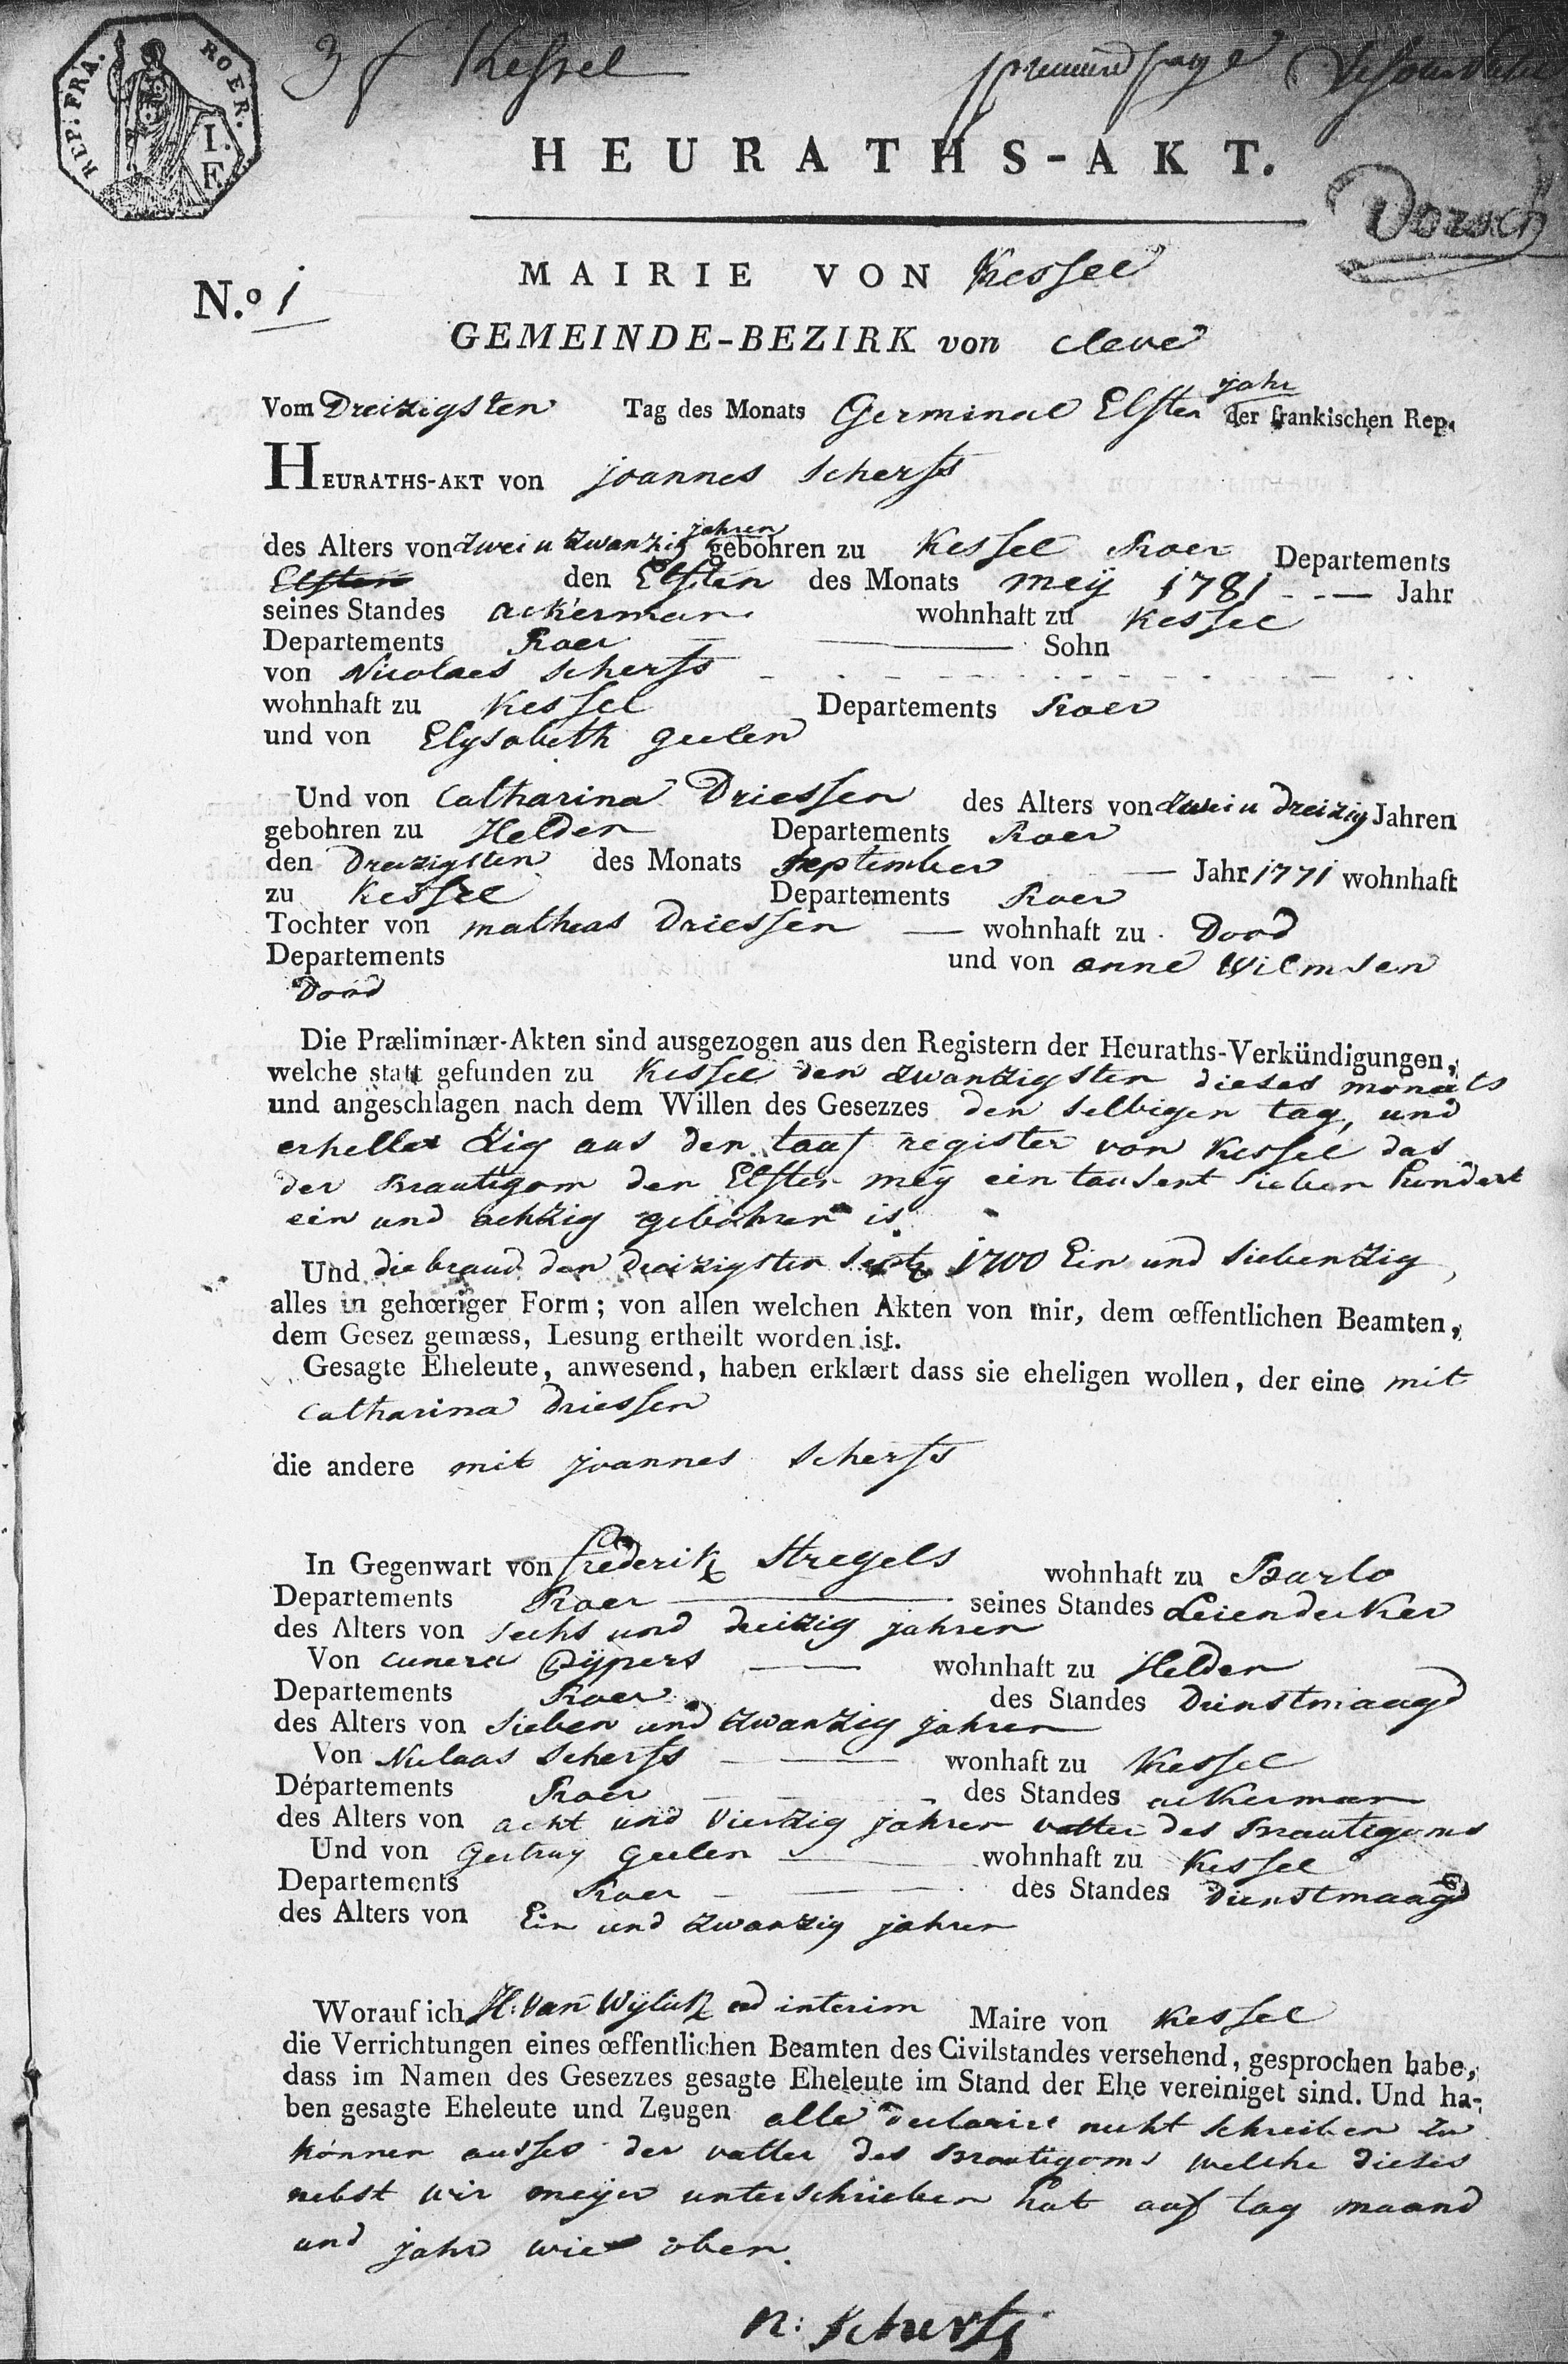 REP. FRA. ROER. I. F.
3 f Kessel premiere page
HEURATHS-AKT.
Dorsch
MAIRIE VON Kessel
N.º 1
GEMEINDE-BEZIRK von Cleve
Vom Dreizigsten Tag des Monats Germinal Elften jahr der frankischen Rep.
HEURATHS-AKT von joannes scherfs
des Alters von zwei u zwanzig jahren gebohren zu Kessel Roer Departements
Elften den Elften des Monats meij 1781 Jahr
seines Standes ackerman wohnhaft zu Kessel
Departements Roer Sohn
von Nicolaes scherfs
wohnhaft zu Kessel Departements Roer
und von Elysabeth geelen
Und von Catharina Driessen des Alters von zwei u dreizig Jahren
gebohren zu Helden Departements Roer
den Dreizigsten des Monats september Jahr 1771 wohnhaft
zu Kessel Departements Roer
Tochter von mathias Driessen wohnhaft zu Dood
Departements und von anne Wilmsen
Dood
Die Præliminær-Akten sind ausgezogen aus den Registern der Heuraths-Verkündigungen,
welche statt gefunden zu Kessel den zwantzigsten dieses monats
und angeschlagen nach dem Willen des Gesezzes den selbigen tag, und
erhellet zig aus den tauf register von Kessel das
der Brautigom den Elften meij ein tausent sieben hundert
ein und achtzig gebohren is
Und die braud den dreizigsten 1700 Ein und siebentzig,
alles in gehœriger Form; von allen welchen Akten von mir, dem œffentlichen Beamten,
dem Gesez gemæss, Lesung ertheilt worden ist.
Gesagte Eheleute, anwesend, haben erklært dass sie eheligen wollen, der eine mit
Catharina Driessen
die andere mit joannes scherfs
In Gegenwart von frederik stregels wohnhaft zu Barlo
Departements Roer seines Standes Leiendecker
des Alters von sechs und dreizig jahren
Von cunera pijpers wohnhaft zu Helden
Departements Roer des Standes Dienstmaagd
des Alters von sieben und zwanzig jahren
Von Niclaas scherfs wonhaft zu Kessel
Départements Roer des Standes ackerman
des Alters von acht und viertzig jahren vatter des Brautigoms
Und von Gertruy Geelen wohnhaft zu Kessel
Departements Roer des Standes Dienstmaagd
des Alters von Ein und zwanzig jahren
Worauf ich H: Van Wylick ad interim Maire von Kessel
die Verrichtungen eines œffentlichen Beamten des Civilstandes versehend, gesprochen habe,
dass im Namen des Gesezzes gesagte Eheleute im Stand der Ehe vereiniget sind. Und ha-
ben gesagte Eheleute und Zeugen alle declarirt nicht schreiben zu
können ausser der vatter des Brautigoms welche dieses
nebst wir meijer unterschrieben hat auf tag maand
und jahr wie oben.
N: scherfs